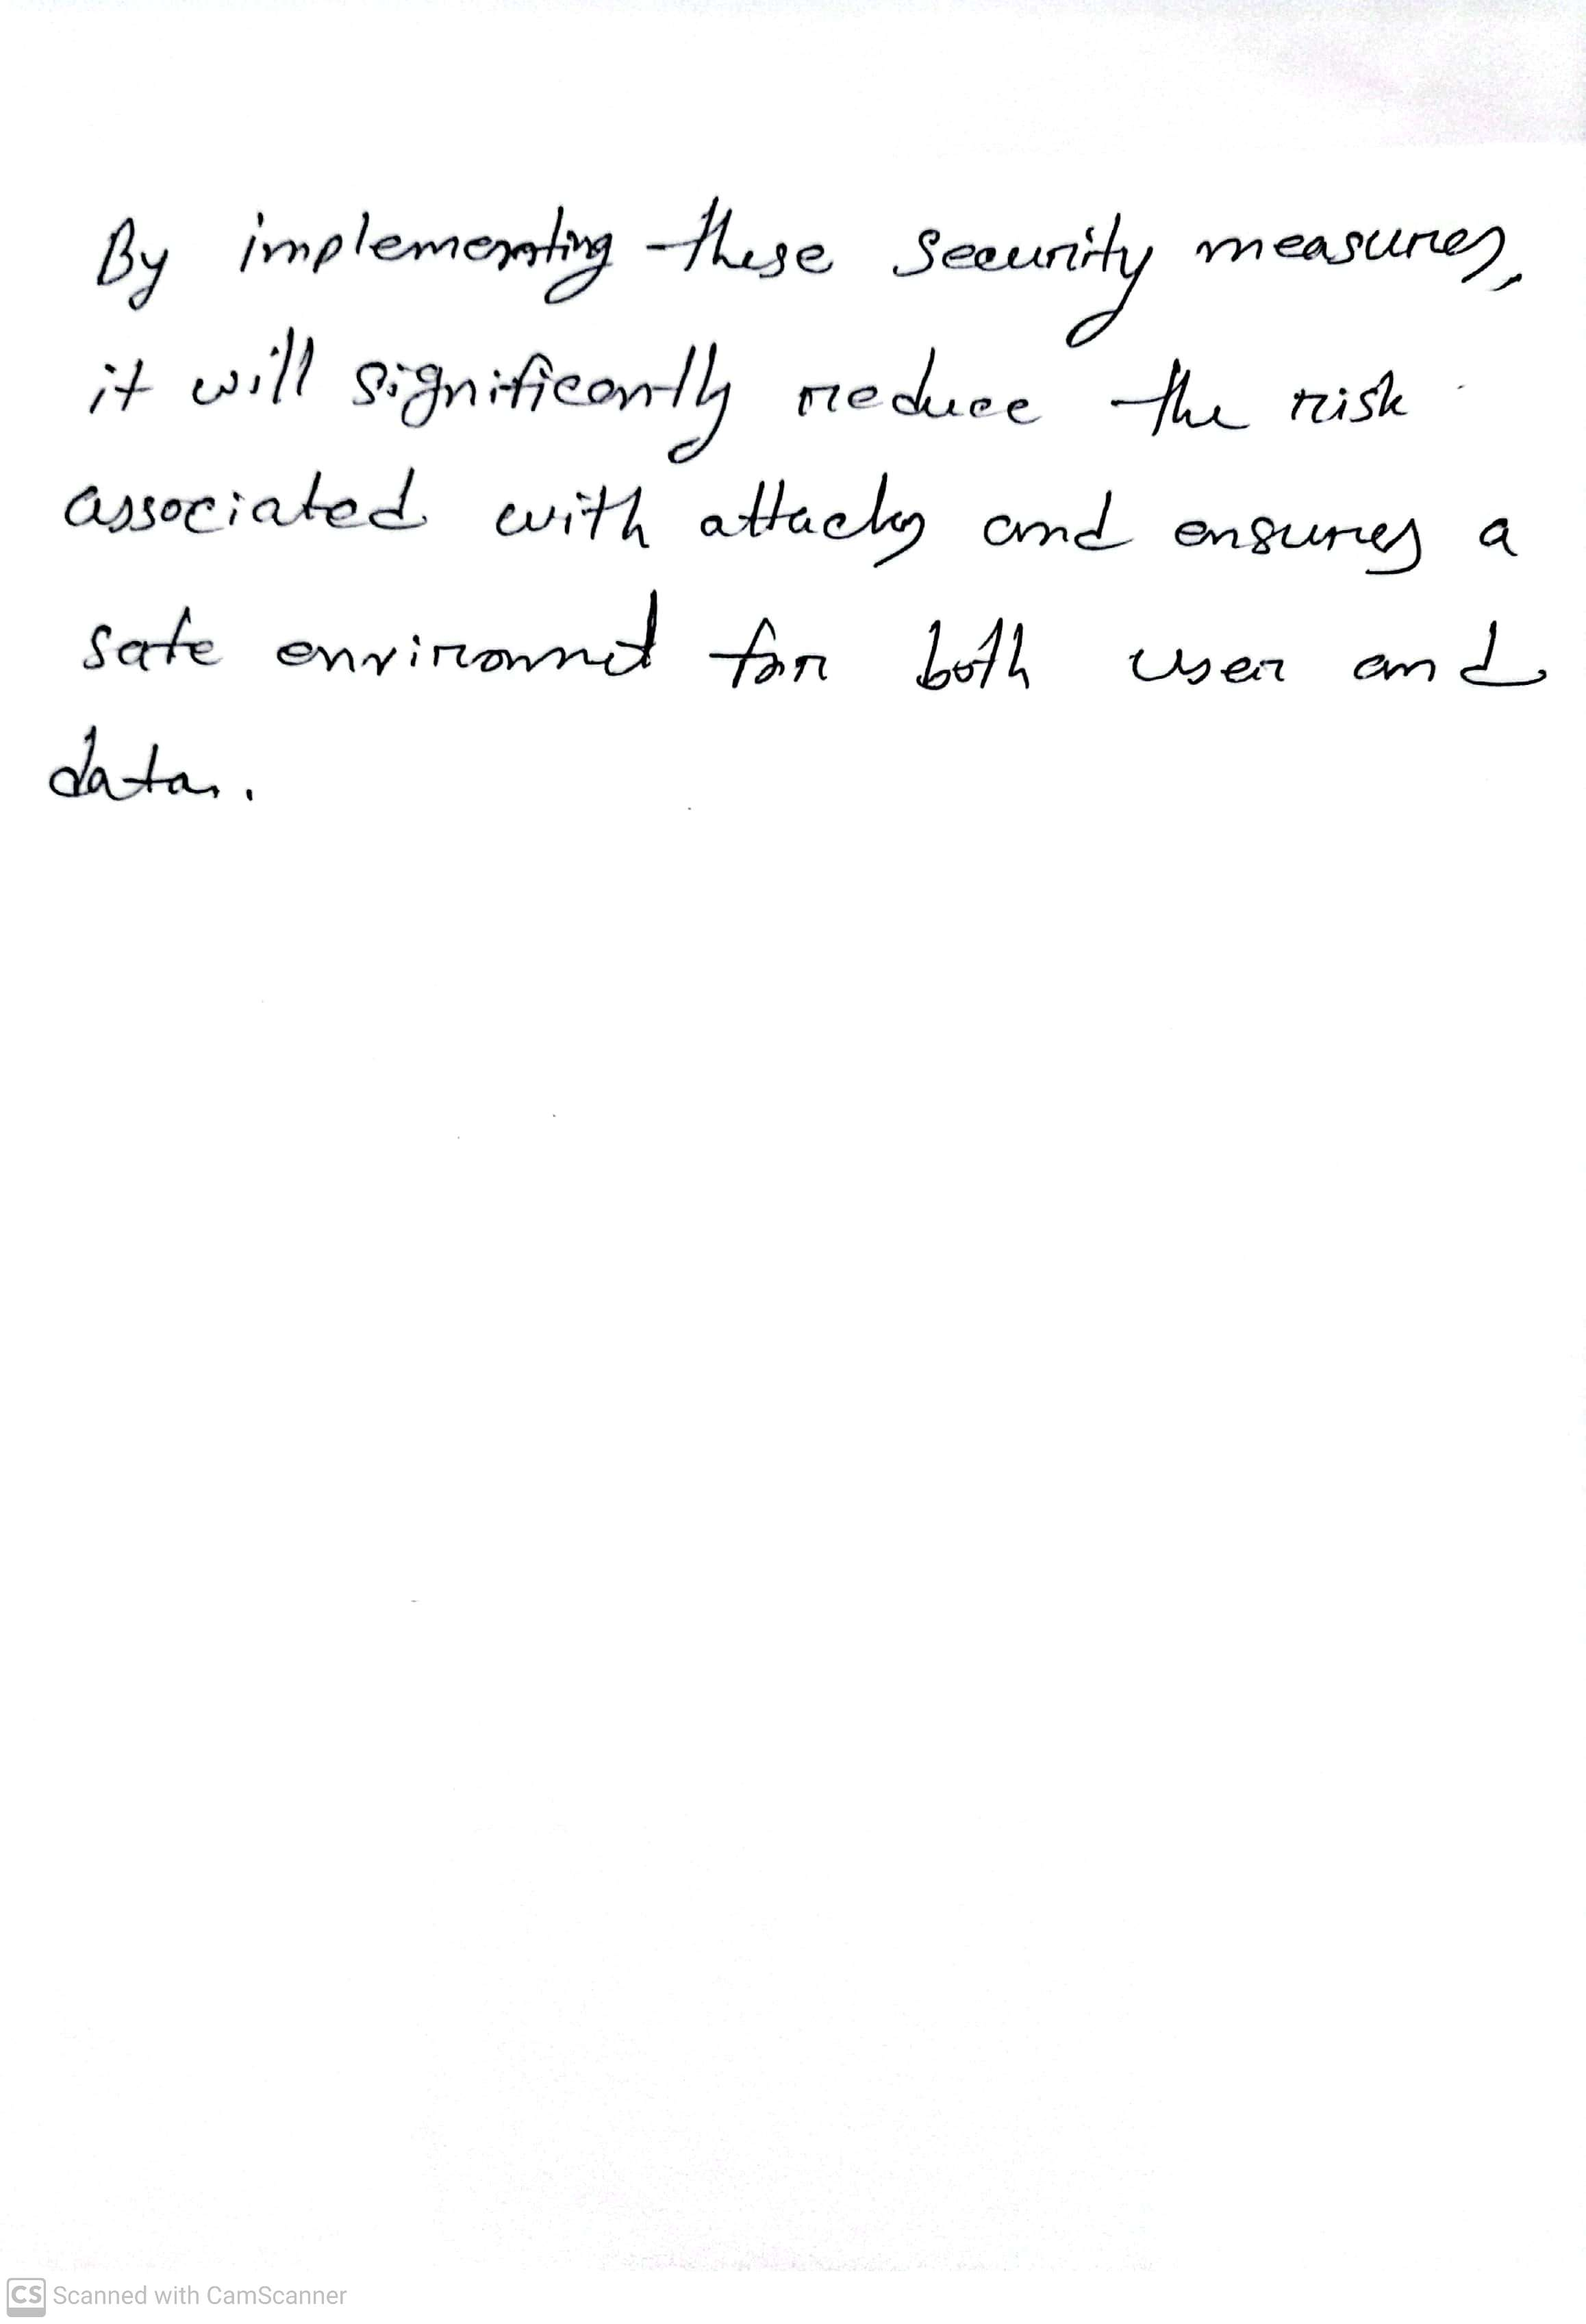 By implementing these security measures,
it will significantly reduce the risk
associated with attacks and ensures a
safe environmet for both user and
data.
CS Scanned with CamScanner